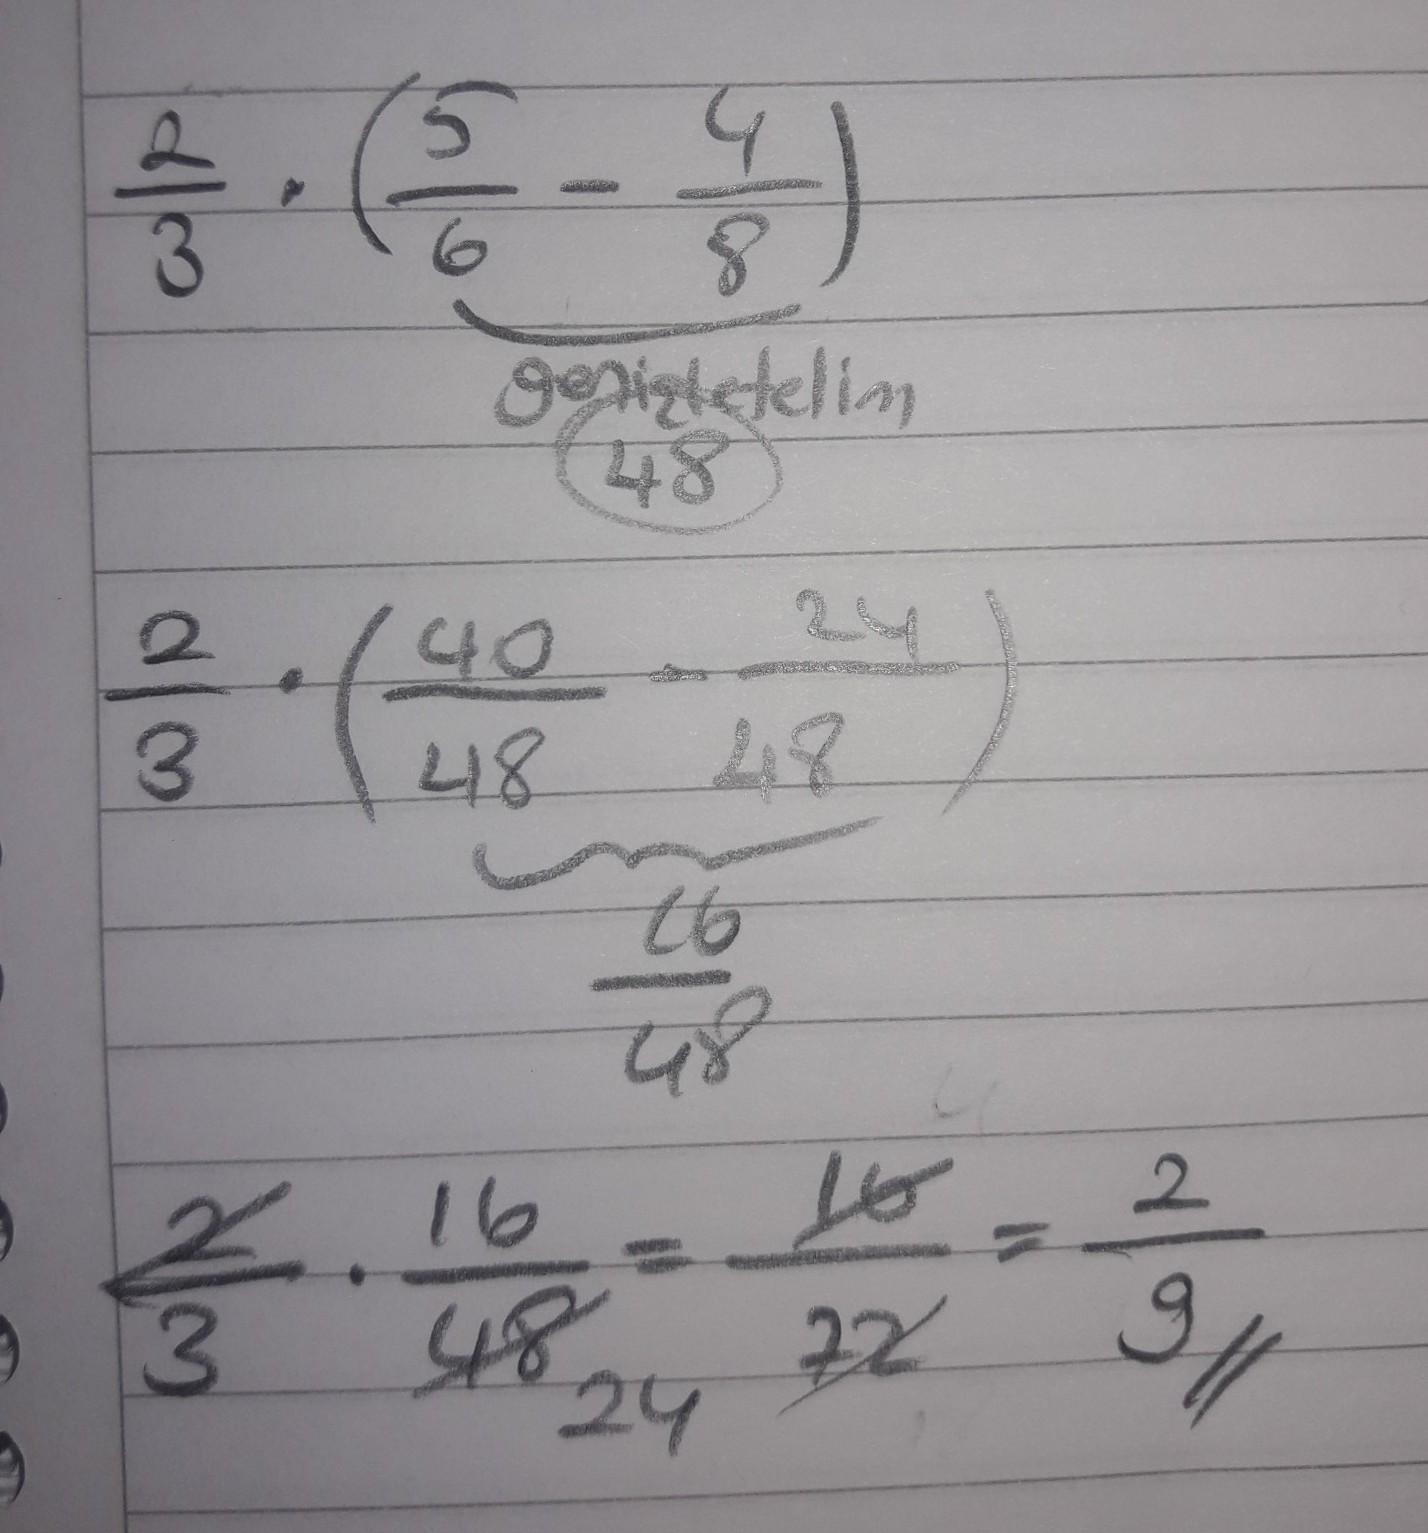 2/3 · (5/6 - 4/8)
genişletelim
48
2/3 · (40/48 - 24/48)
16/48
2/3 · 16/48 = 16/72 = 2/9
24